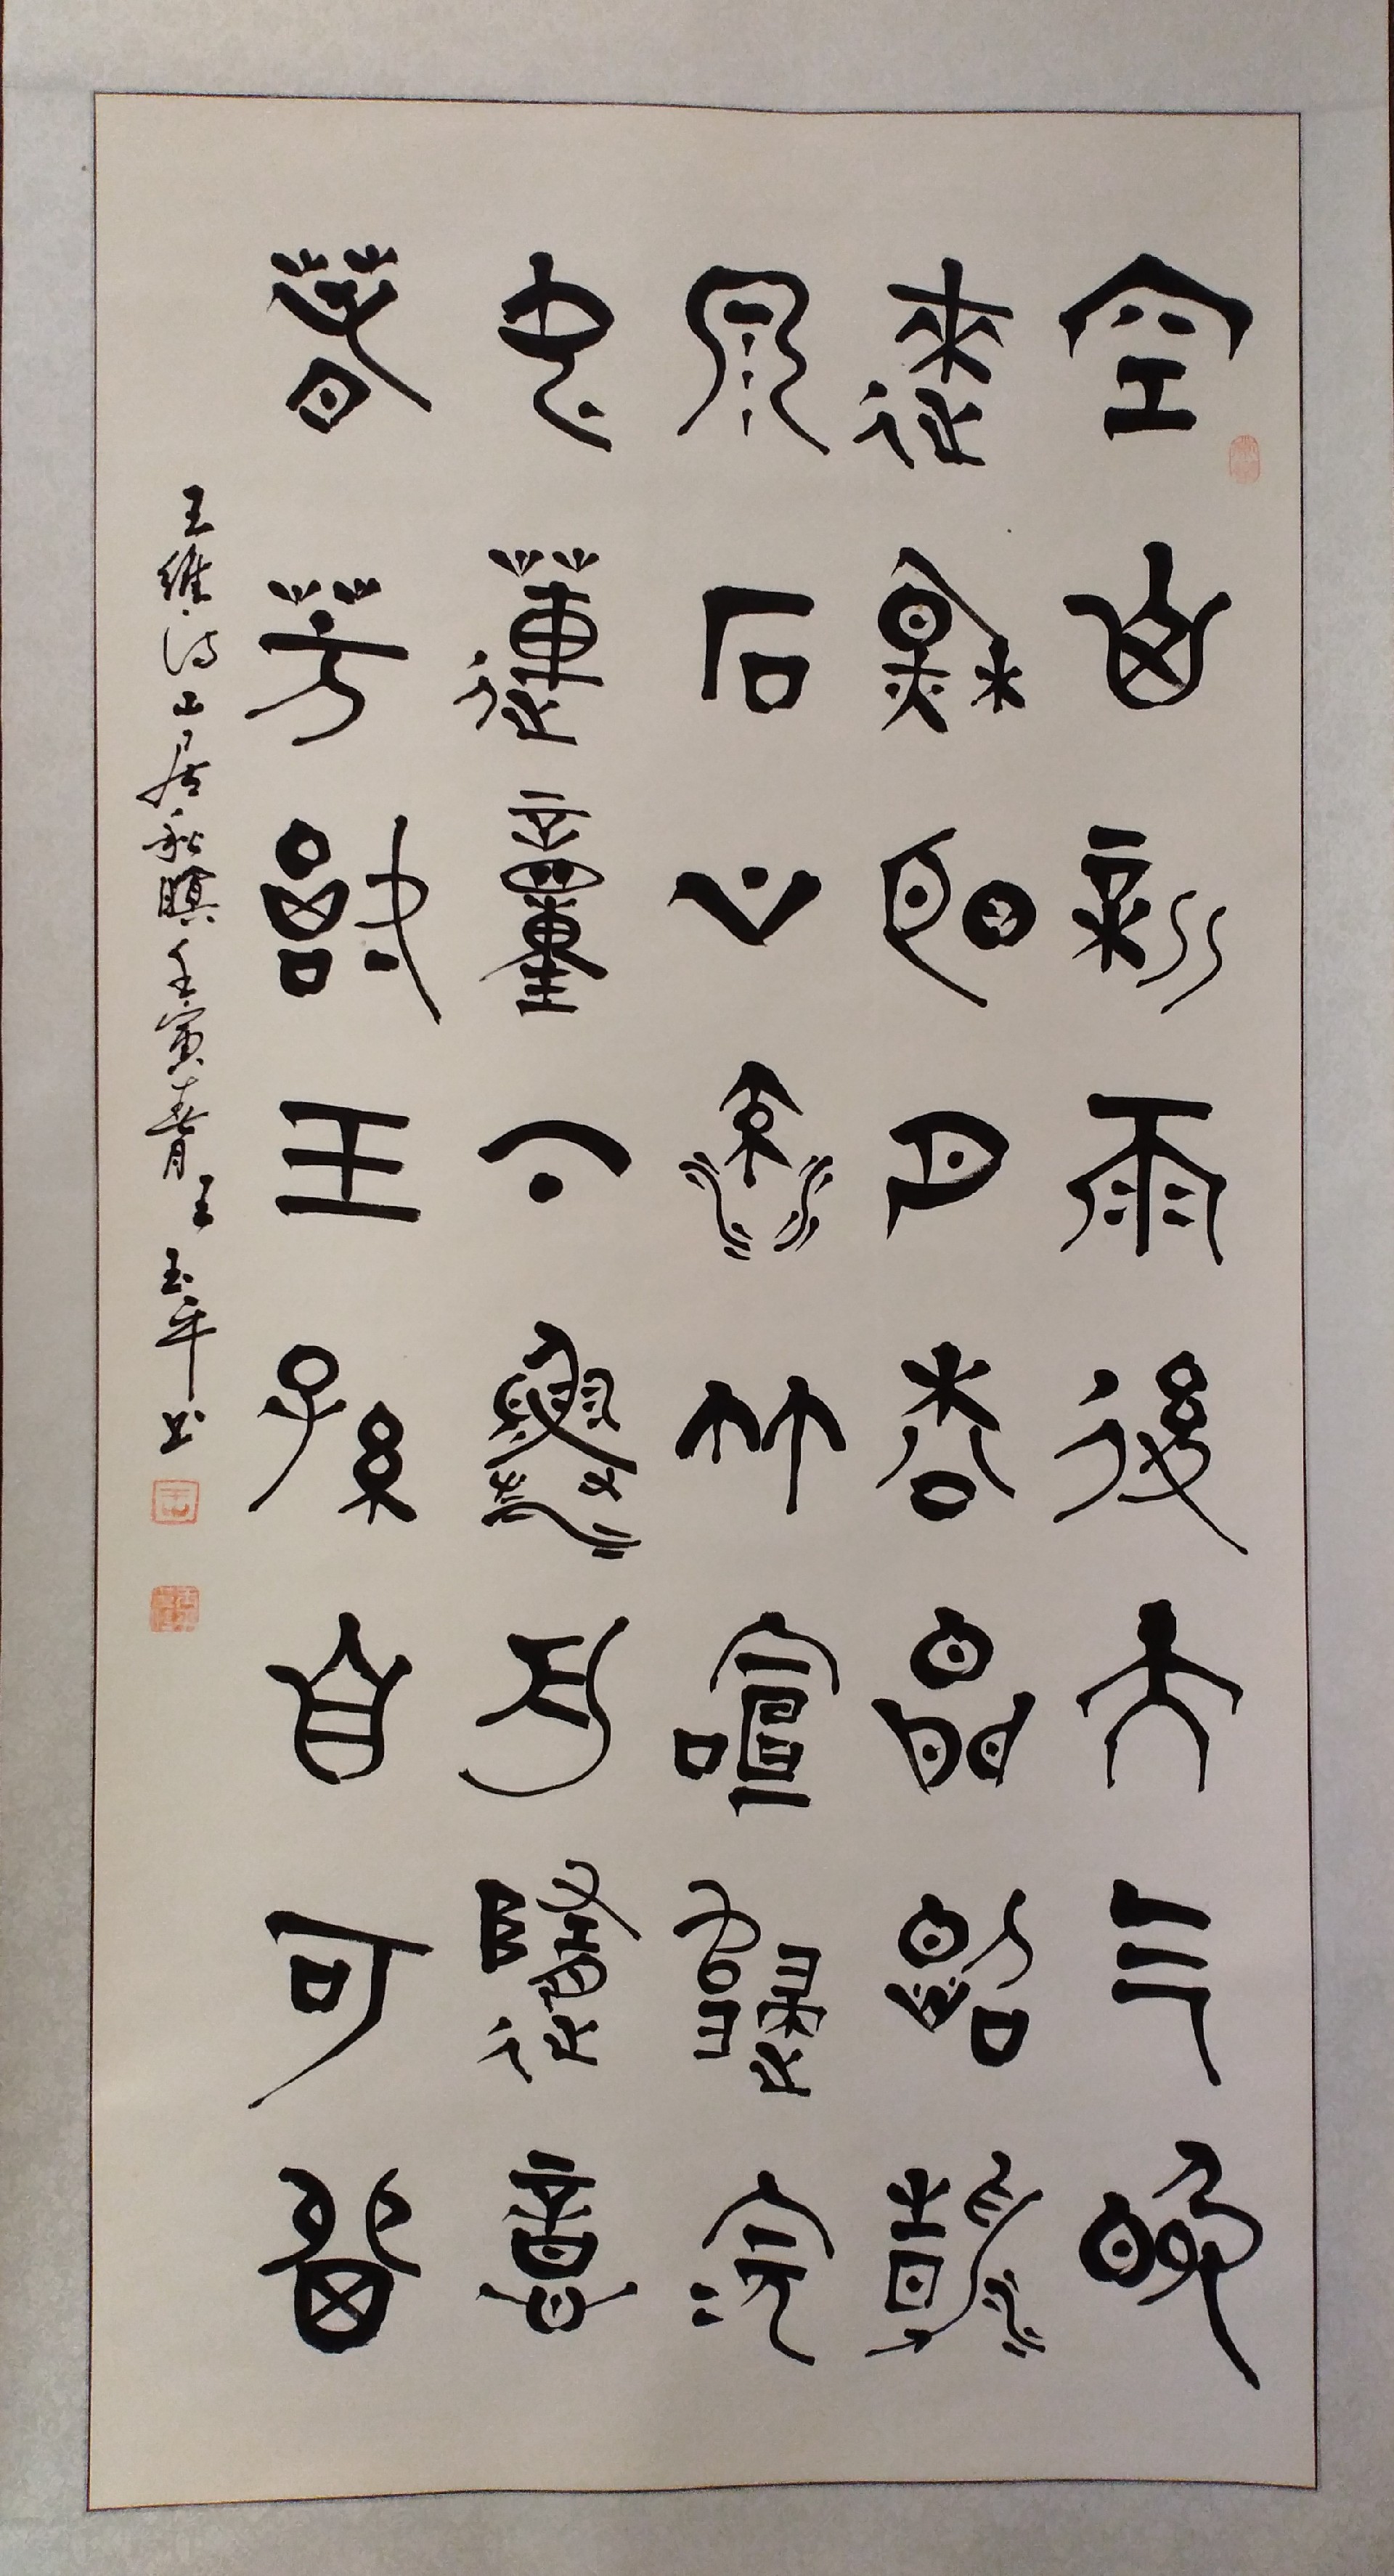 空山新雨後天气晚
來秋明月松間照清
泉石上流竹喧歸浣
女蓮動下漁舟隨意
春芳歇王孫自可留
王維詩山居秋暝壬寅春月王玉平书